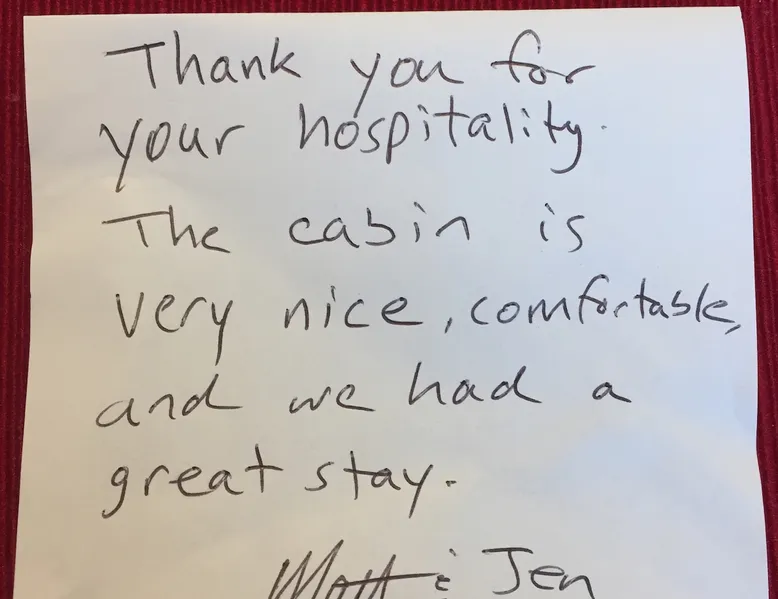 Thank you for
your hospitality.
The cabin is
very nice, comfortable,
and we had a
great stay.
Matt & Jen